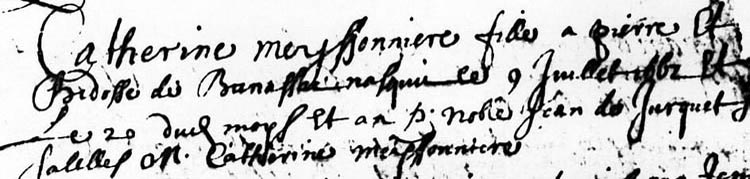 Catherine meyssonniere fille a pierre Et
de Banassac nasquit le 9 Juillet 1662 Et
Le 20 dud moys Et an p. noble Jean de Jurquet
salelles M. Catherine meyssonniere